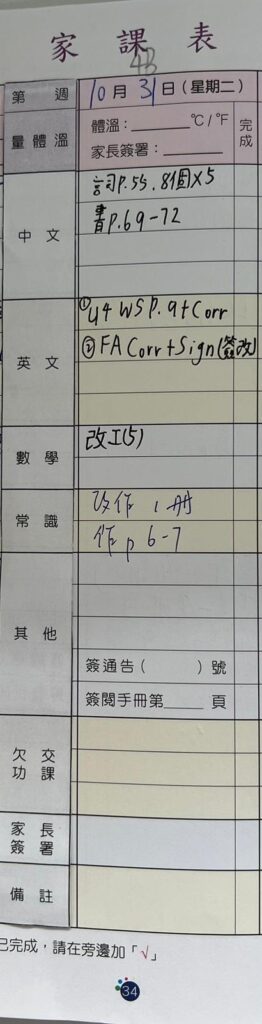 家課表
4B
第 週 10月31日(星期二)
量體溫 體溫：______°C/°F 完成
家長簽署：______
中文 詞P.55.8個X5
書P.69-72
英文 ①U4 WS P.9+Corr
②FA Corr+Sign(簽改)
數學 改工(5)
常識 改作1冊
作p 6-7
其他
簽通告( )號
簽閱手冊第____頁
欠交功課
家長簽署
備註
已完成，請在旁邊加「√」
34